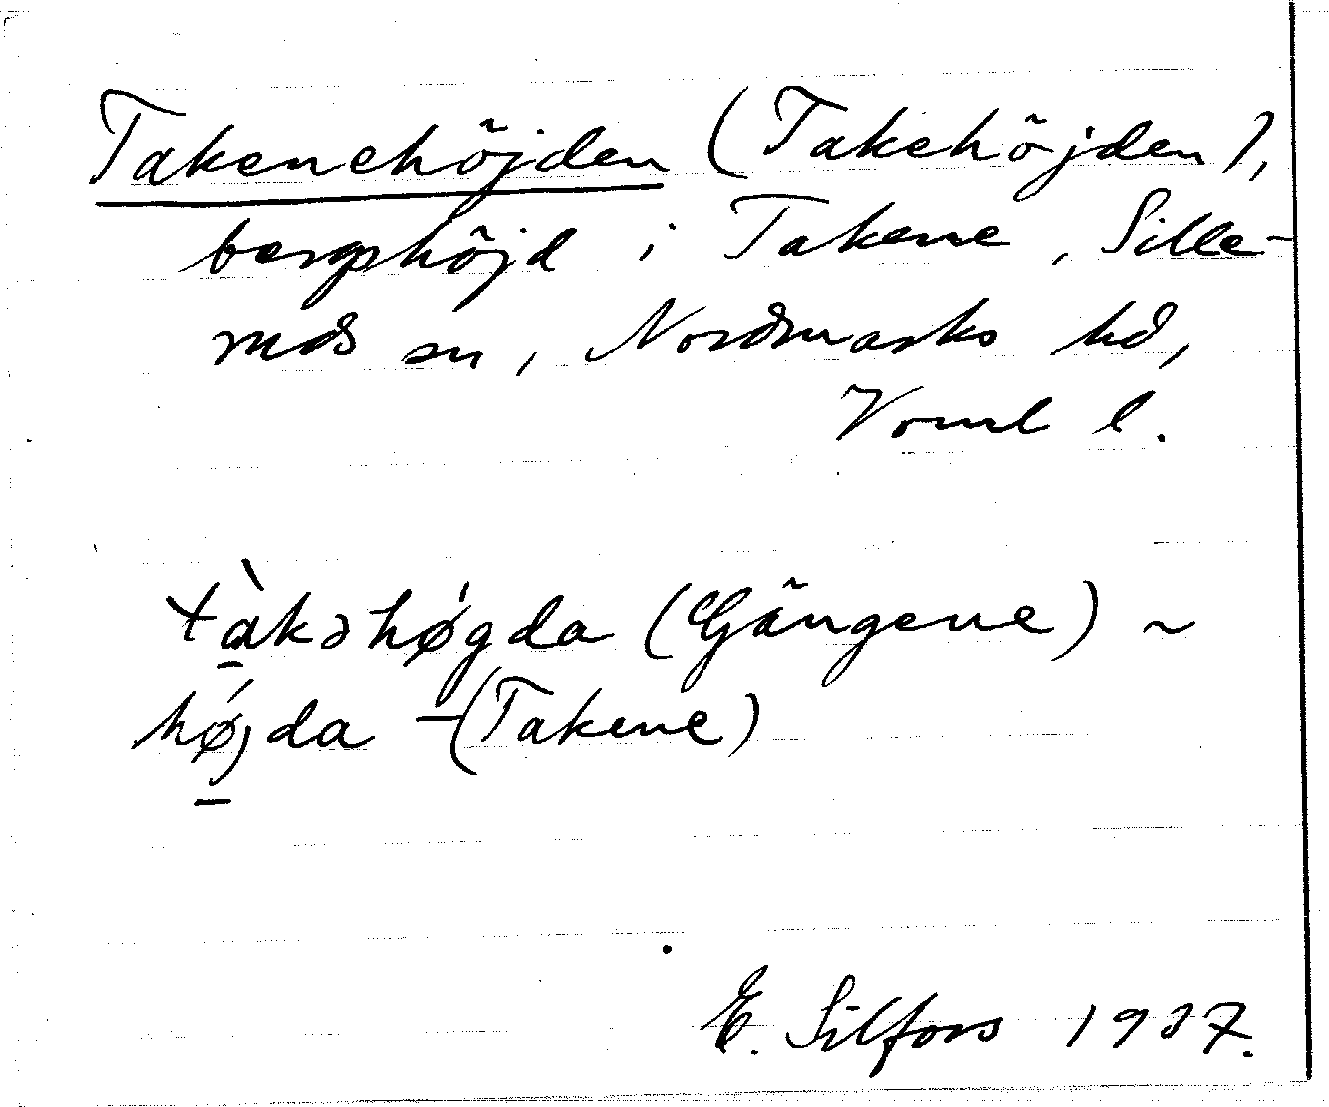 Takenehöjden (Takehöjden),
bergshöjd i Takene, Sille-
ruds sn, Nordmarks hd,
Vrml l.
tàkəhǿgda (Gängene) ~
hǿjda –(Takene)
E. Silfors 1937.